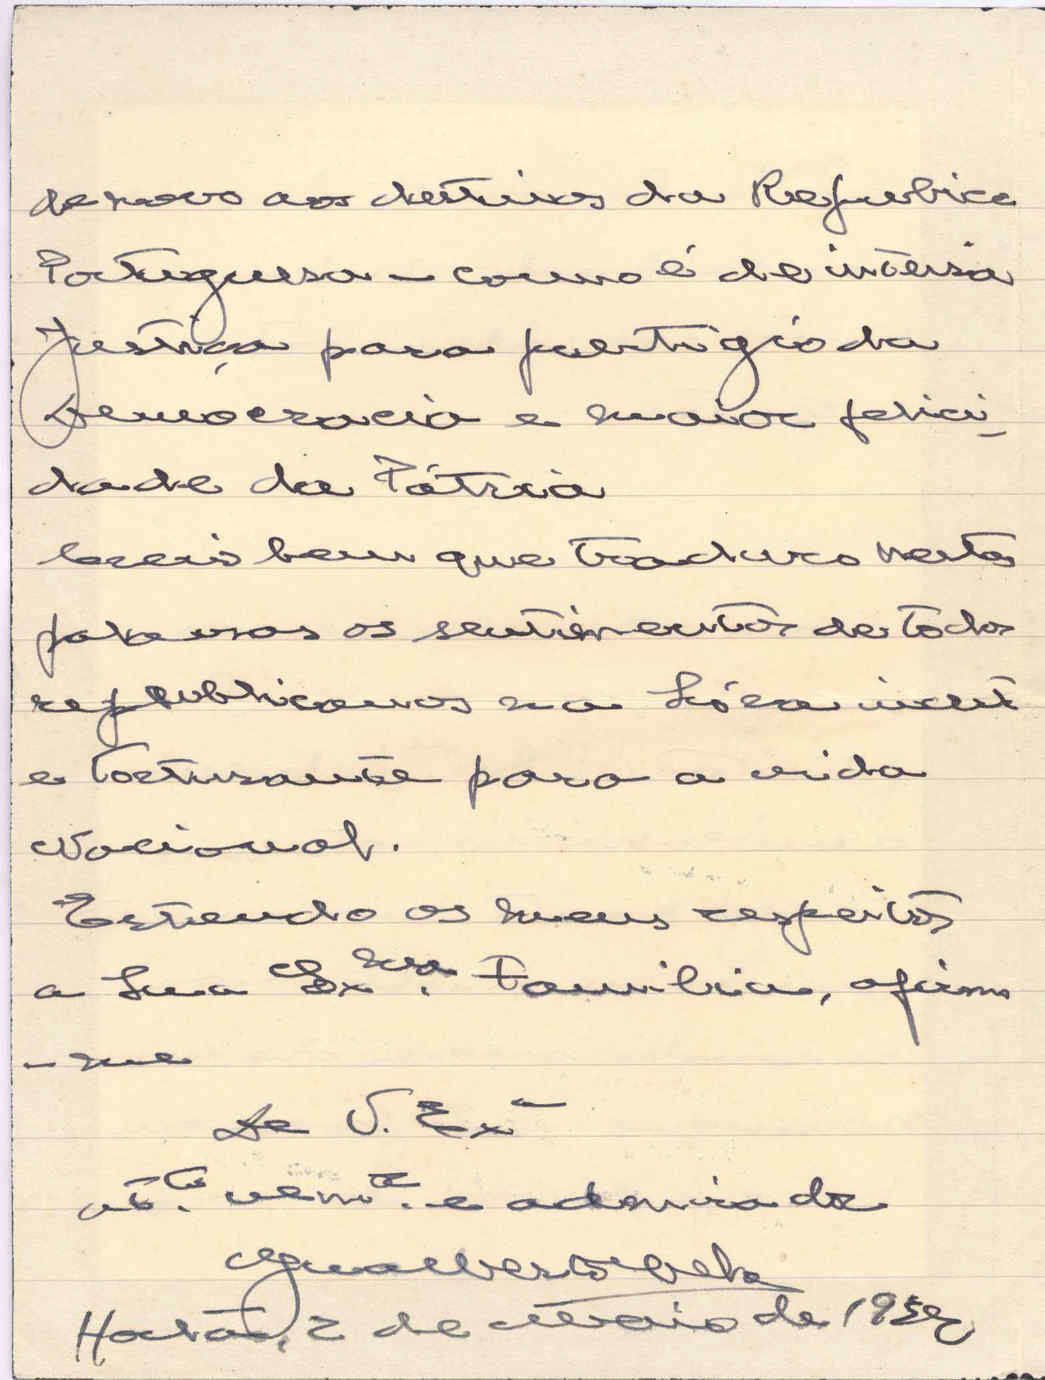 de novo aos destinos da Republica
Portuguesa – como é de inteira
Justiça para prestigio da
Democracia e maior felici-
dade da Pátria
Creia bem que traduzo nestas
palavras os sentimentos de todos
republicanos na hóra
e torturante para a vida
Nacional.
Estendo os meus respeitos
a Sua Exma. Familia, afirmo
-me
De V. Exª
at.to ven.or e admirador
Gualberto Melo
2 de Maio de 195